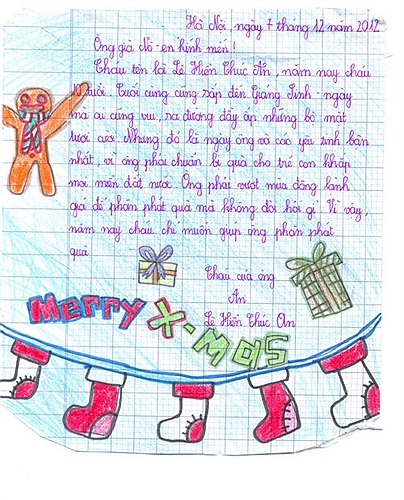 Hà Nội, ngày 7 tháng 12 năm 2012
Ông già Nô-en kính mến!
Cháu tên là Lê Hiền Thúc An, năm nay cháu
10 tuổi. Cuối cùng cũng sắp đến Giáng Sinh - ngày
mà ai cũng vui, ra đường đầy ắp những bộ mặt
tươi cười. Nhưng đó là ngày ông và các yêu tinh bận
nhất, vì ông phải chuẩn bị quà cho trẻ con khắp
mọi miền đất nước. Ông phải vượt mưa đông lạnh
giá để phân phát quà mà không đòi hỏi gì. Vì vậy,
năm nay cháu chỉ muốn giúp ông phân phát
quà
Cháu của ông
An
Lê Hiền Thúc An
Merry X-Mas